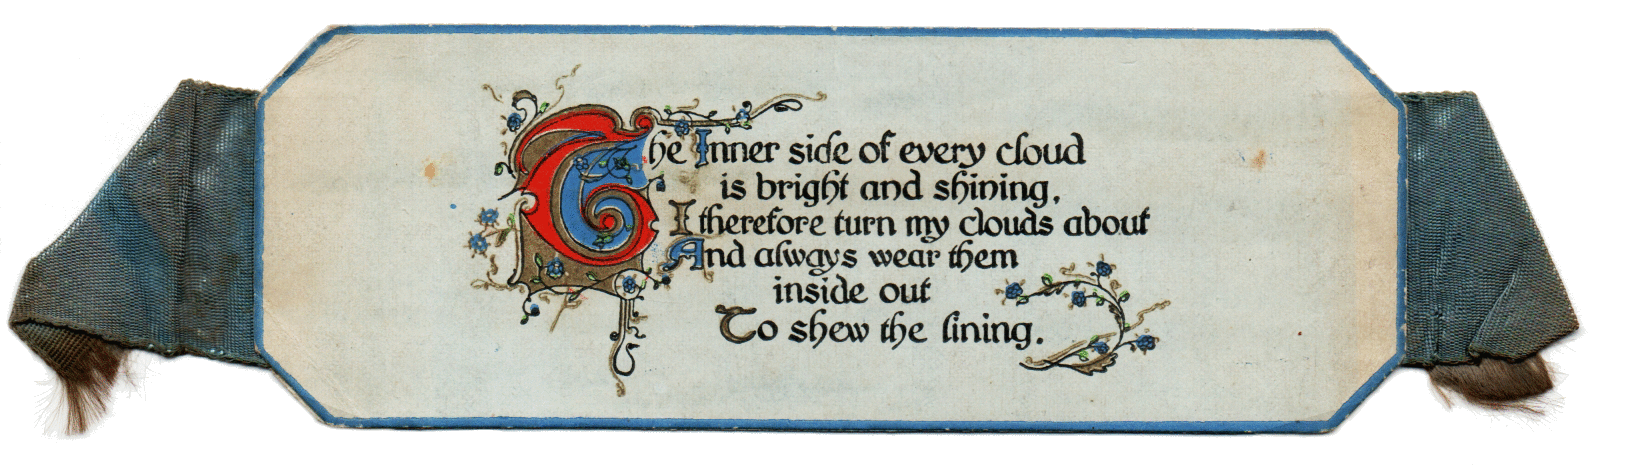 The Inner side of every cloud
is bright and shining,
I therefore turn my clouds about
And always wear them
inside out
To shew the lining.